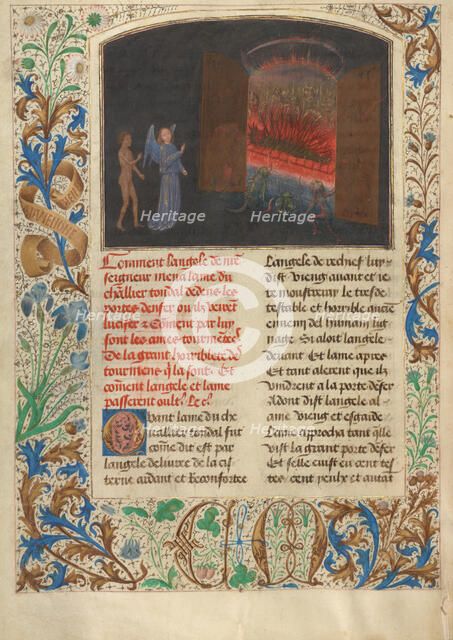 Comment langele de n're
seigneur mena lame du
cheualier tondal dedens les
portes denfer ou ilz virent
lucifer Et Coment par luy
sont les ames tourmentees
De la grant horriblete des
tourmens q'la sont Et
coment langele et lame
passerent oult' Le c'
Quant lame du che
uallier tondal fut
come dit est par
langele deliure de la cis
terne aidant et Reconforte
Langele de rechief luy
dist Vieng auant et ie
te monstreray le tresde
testable et horrible ancien
ennemi del humain lig
nage Si aloit langele
deuant Et lame apres
Et tant alerent que ilz
vindrent a la porte denfer
Adont dist langele al
ame Vieng et esgarde
Lame approcha tant q'lle
vist la grant porte denfer
Et selle euist eu cent tes
tes cent yeulx et autat
Heritage
Heritage
Heritage
Heritage
Heritage
Heritage
©